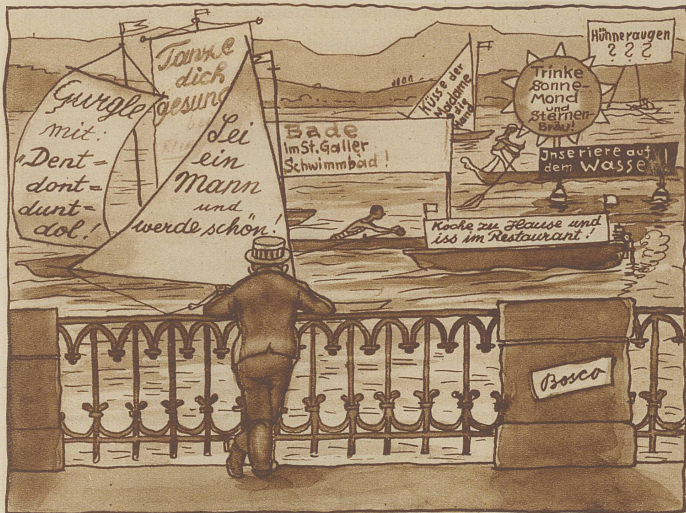 Tanze
dich
gesund
Gurgle
mit:
"Dent=
dont=
dunt=
dol!
Sei
ein
Mann
und
werde schön!
Bade
im St. Galler
Schwimmbad!
Küsse der
Madame
die
Trinke
Sonne-
Mond
und
Sternen-
Bräu!
Hühneraugen
? ? ?
Inseriere auf
dem Wasser!
Koche zu Hause und
iss im Restaurant!
Bosco